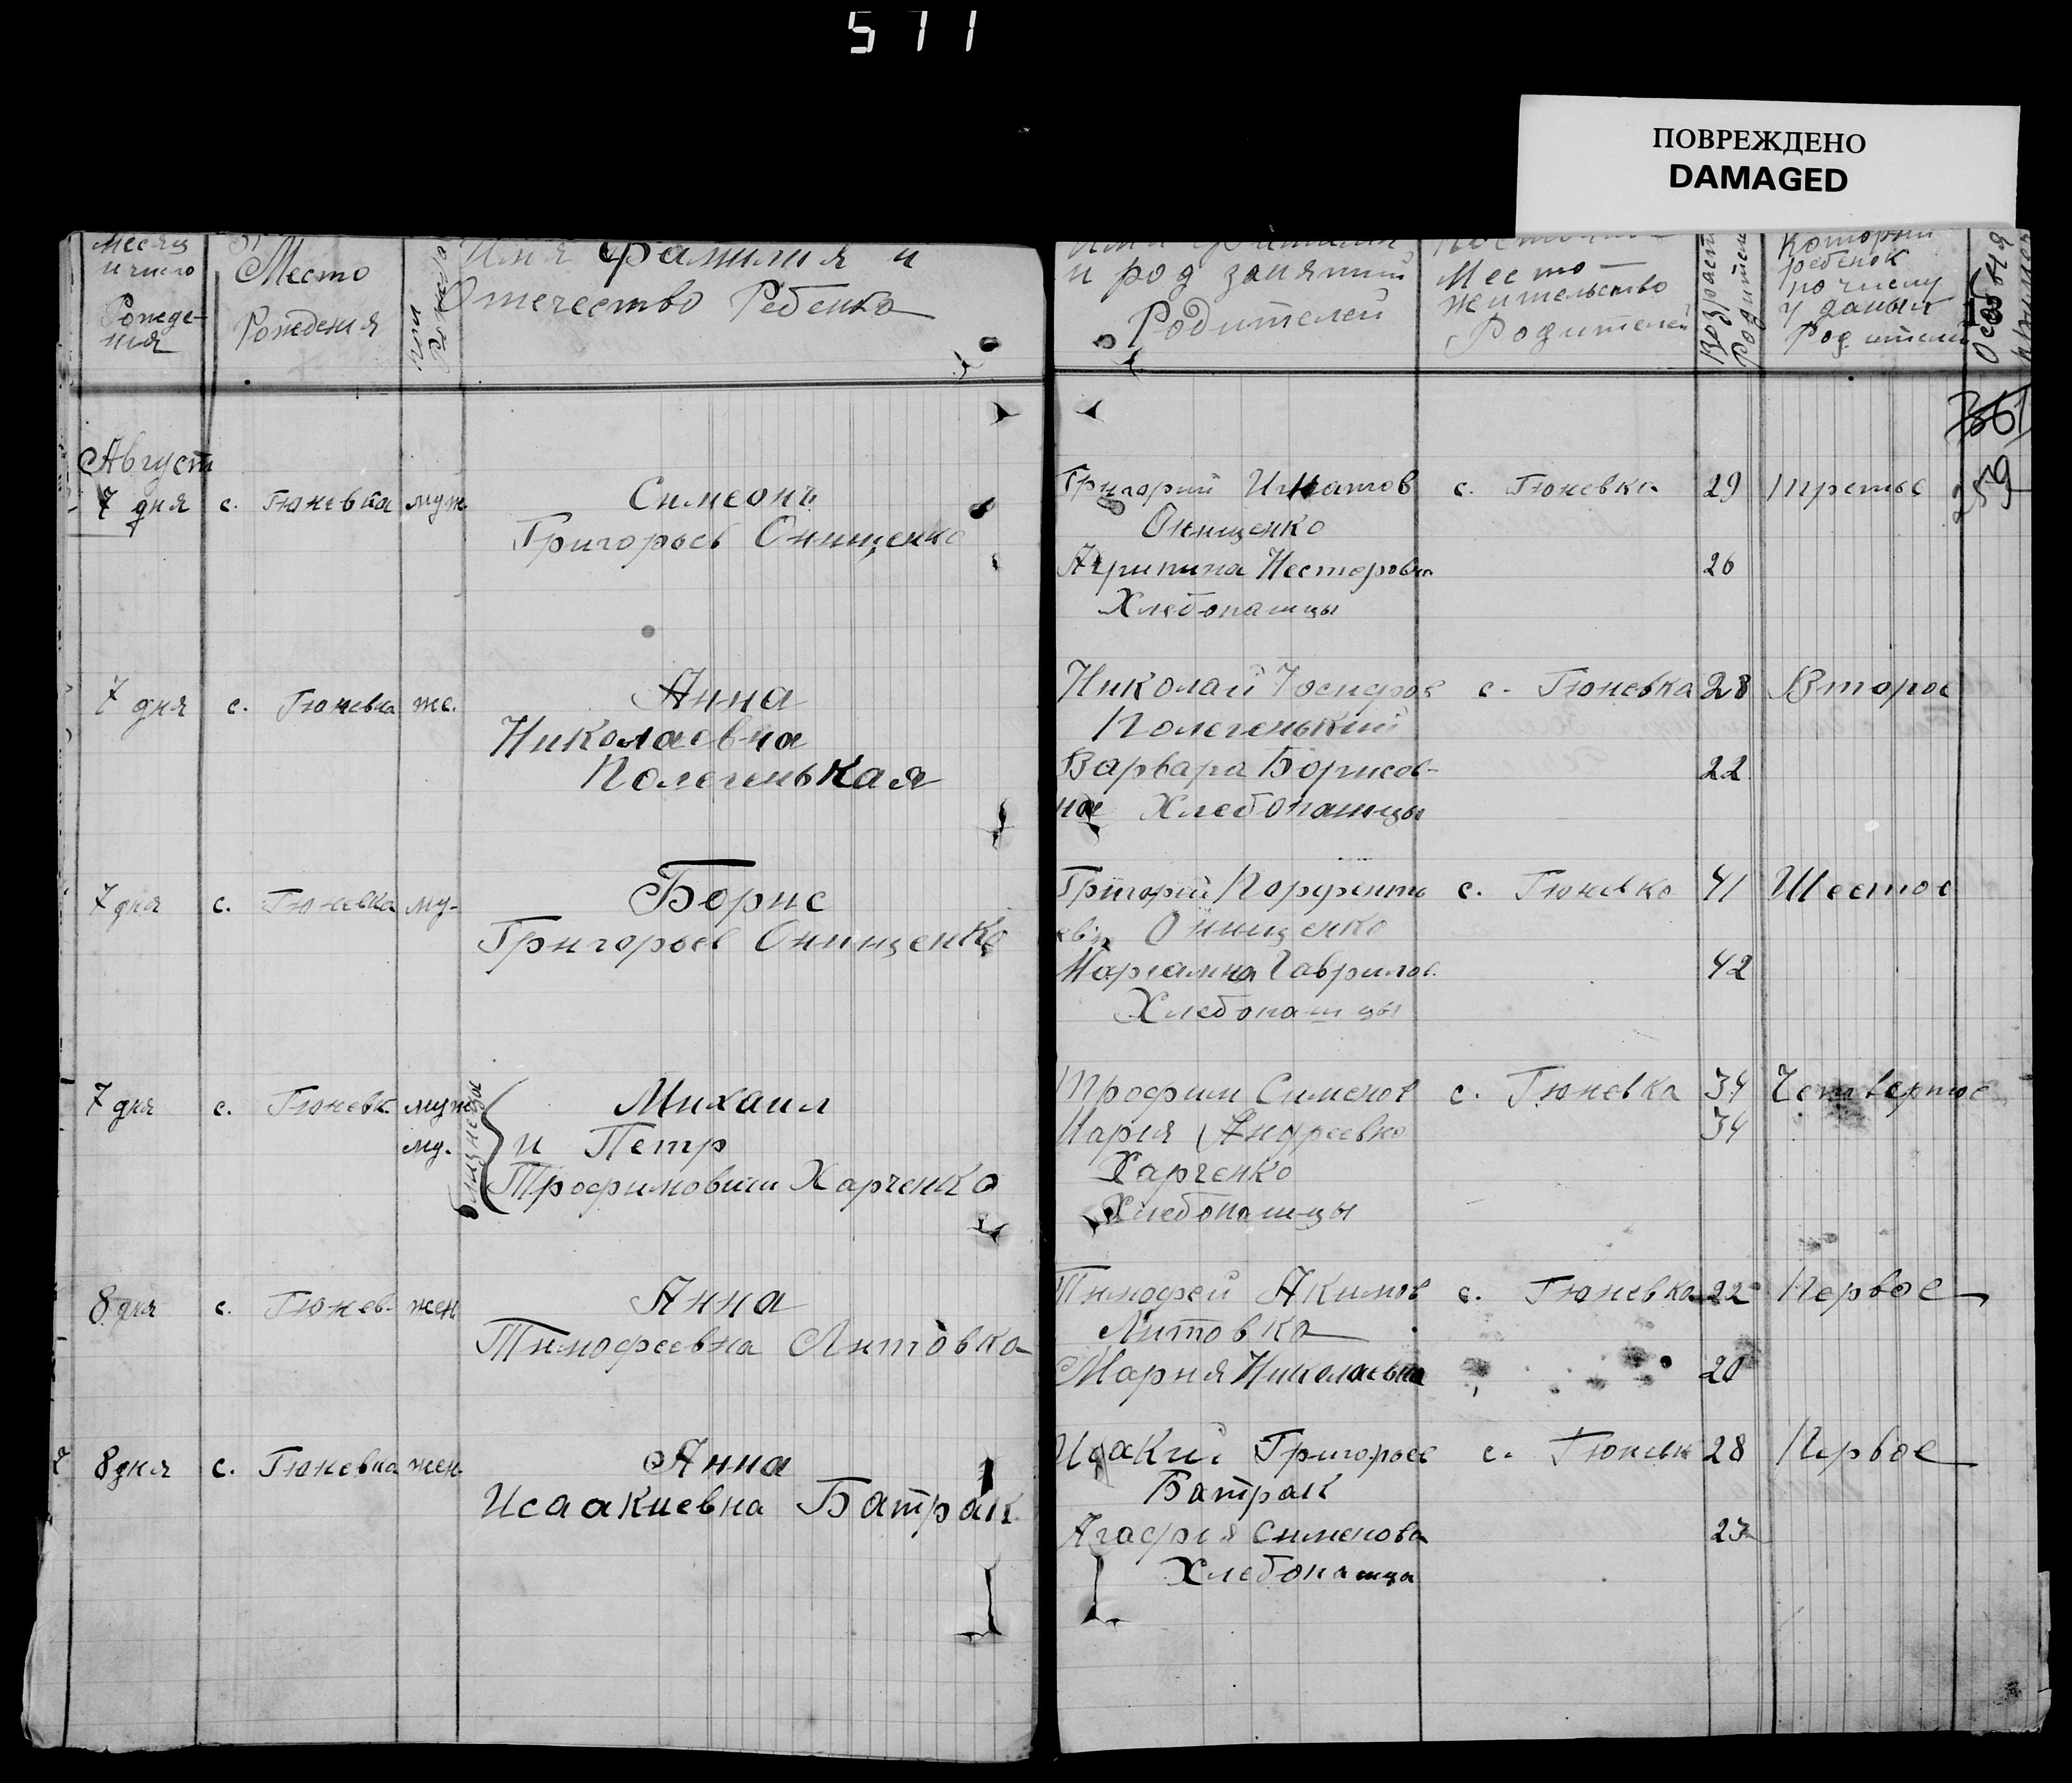 511
ПОВРЕЖДЕНО
DAMAGED
месяц
и число
Рожде-
ния
Место
Рождения
Имя Фамилия и
Отечество Ребенка
и род занятий
Родителей
Место
жительство
Родителей
Возраст
Родителей
Который
ребенок
по числу
у даных
Родителей
361
259
Август
7 дня с. Гюневка муж.
Симеонъ
Григорьев Онищенко
Григорий Игнатов
Онищенко
Агрипина Нестеровна
Хлебопашцы
с. Гюневка 29 третье
26
7 дня с. Гюневка же.
Анна
Николаевна
Полегенькая
Николай Иосифов
Полегенький
Варвара Борисов-
на Хлебопашцы
с. Гюневка 28 Второе
22
7 дня с. Гюневка му-
Борис
Григорьев Онищенко
Григорий Порфенть
евъ Онищенко
Марианна Гаврилов.
Хлебопашцы
с. Гюневко 41 Шестое
42
7 дня с. Гюневк муж
му.
близнецы
Михаил
и Петр
Трофимовичи Харченко
Трофим Сименов
Мария Андреевно
Харченко
Хлебопашцы
с. Гюневка 34 Четвертое
34
8 дня с. Гюнев- жен
Анна
Тимофеевна Литовка
Тимофей Акимов
Литовка
Мария Николаевна
с. Гюневка 22 Первое
20
8 дня с. Гюневка жен.
Анна
Исаакиевна Батрак
Исакий Григорьев
Батрак
Агафия Сименова
Хлебопашца
с. Гюневк 28 Первое
23